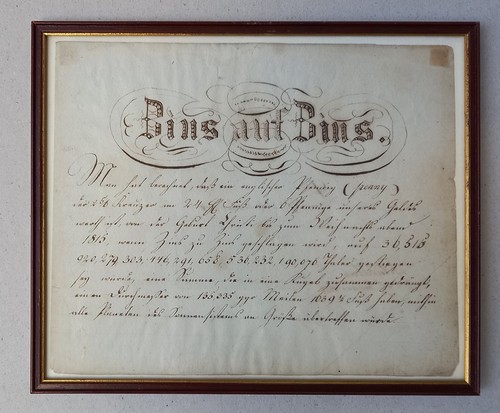 Zins auf Zins.
Man hat berechnet, daß ein englischer Pfenning (penny)
der 2½ Kreuzer im 24 Fuß oder 6 Pfennige unseres Geldes
werth ist, von der Geburt Christi bis zum Weihnachtabend
1815 wenn Zins zu Zins geschlagen word, auf 36,515
920,279,303,446,291,058,536,232,190,076 Thaler gestiegen
sey würde, eine Summe, die in eine Kugel zusammen gedrängt,
einen Durchmesser von 133,535 Meilen 1059 Fuß haben, mithin
alle Planeten des Sonnensistems an Größe übertreffen würde.